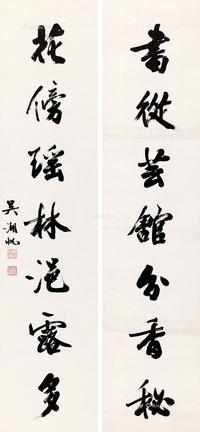 書從芸館分香秘
花傍瑶林浥露多
吳湖帆